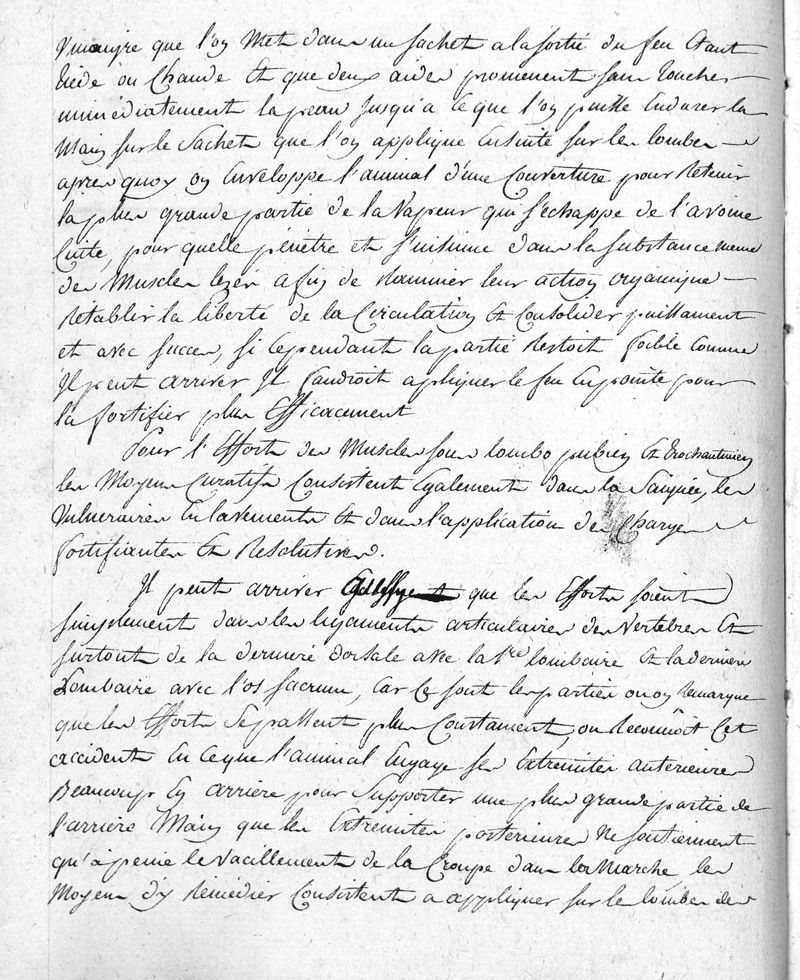 Vinaigre que l'on Met dans un sachet a la sortie du feu Etant
tiède ou Chaude Et que deux aides promenent sans toucher
immédiatement la peau Jusqu'a ce que l'on puisse Endurer la
Main sur le Sachet que l'on applique Ensuite sur les lombes
apres quoy on Enveloppe l'animal d'une Couverture pour Retenir
la plus grande partie de la Vapeur qui s'échappe de l'avoine
Cuite, pour quelle pénètre et s'insinue dans la substance meme
des Muscles lezés afin de Ranimer leur action organique
Rétablir la liberté de la Circulation Et Consolider puissament
et avec succes, si cependant la partie Restoit foible comme
Il peut arriver Il faudroit apliquer le feu En pointe pour
la fortifier plus Efficacement
Pour l'Effort des Muscles sous lombo pubien Et trochantinien
les Moyens Curatifs Consistent Egalement dans la Saignée, les
Vulneraires En lavements Et dans l'application de Charges
fortifiantes Et Resolutives.
Il peut arriver que les Efforts soient
simplement dans les ligaments articulaires des Vertebres Et
surtout de la derniere dorsale avec la 1re lombaire, Et la derniere
Lombaire avec l'os sacrum, Car Ce sont les parties ou on Remarque
que les Efforts Se passent plus Constament, on Reconnoit Cet
accident En ce que l'animal Engage ses Extremites anterieures
Beaucoup En arriere pour Supporter une plus grande partie de
l'arriere Main que les Extremites posterieures Ne soutiennent
qu'à peine le Vacillement de la Croupe dans la Marche, les
Moyens d'y Remédier Consistent a appliquer sur les lombes des